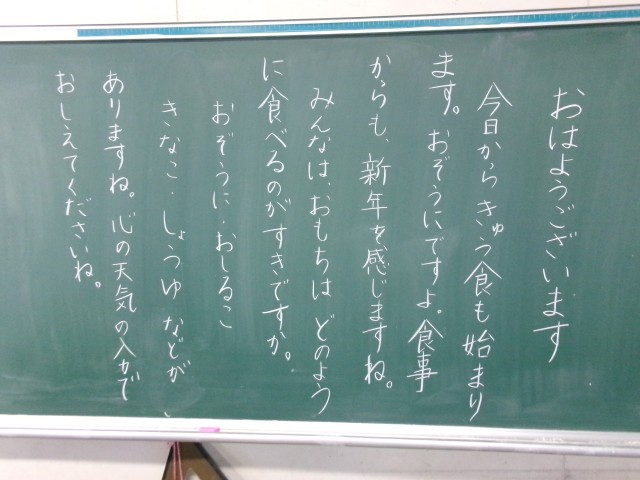 おはようございます
今日からきゅう食も始まり
ます。おぞうにですよ。食事
からも、新年を感じますね。
みんなは、おもちはどのよう
に食べるのがすきですか。
おぞうに・おしるこ
きなこ・しょうゆなどが
ありますね。心の天気の入力で
おしえてくださいね。